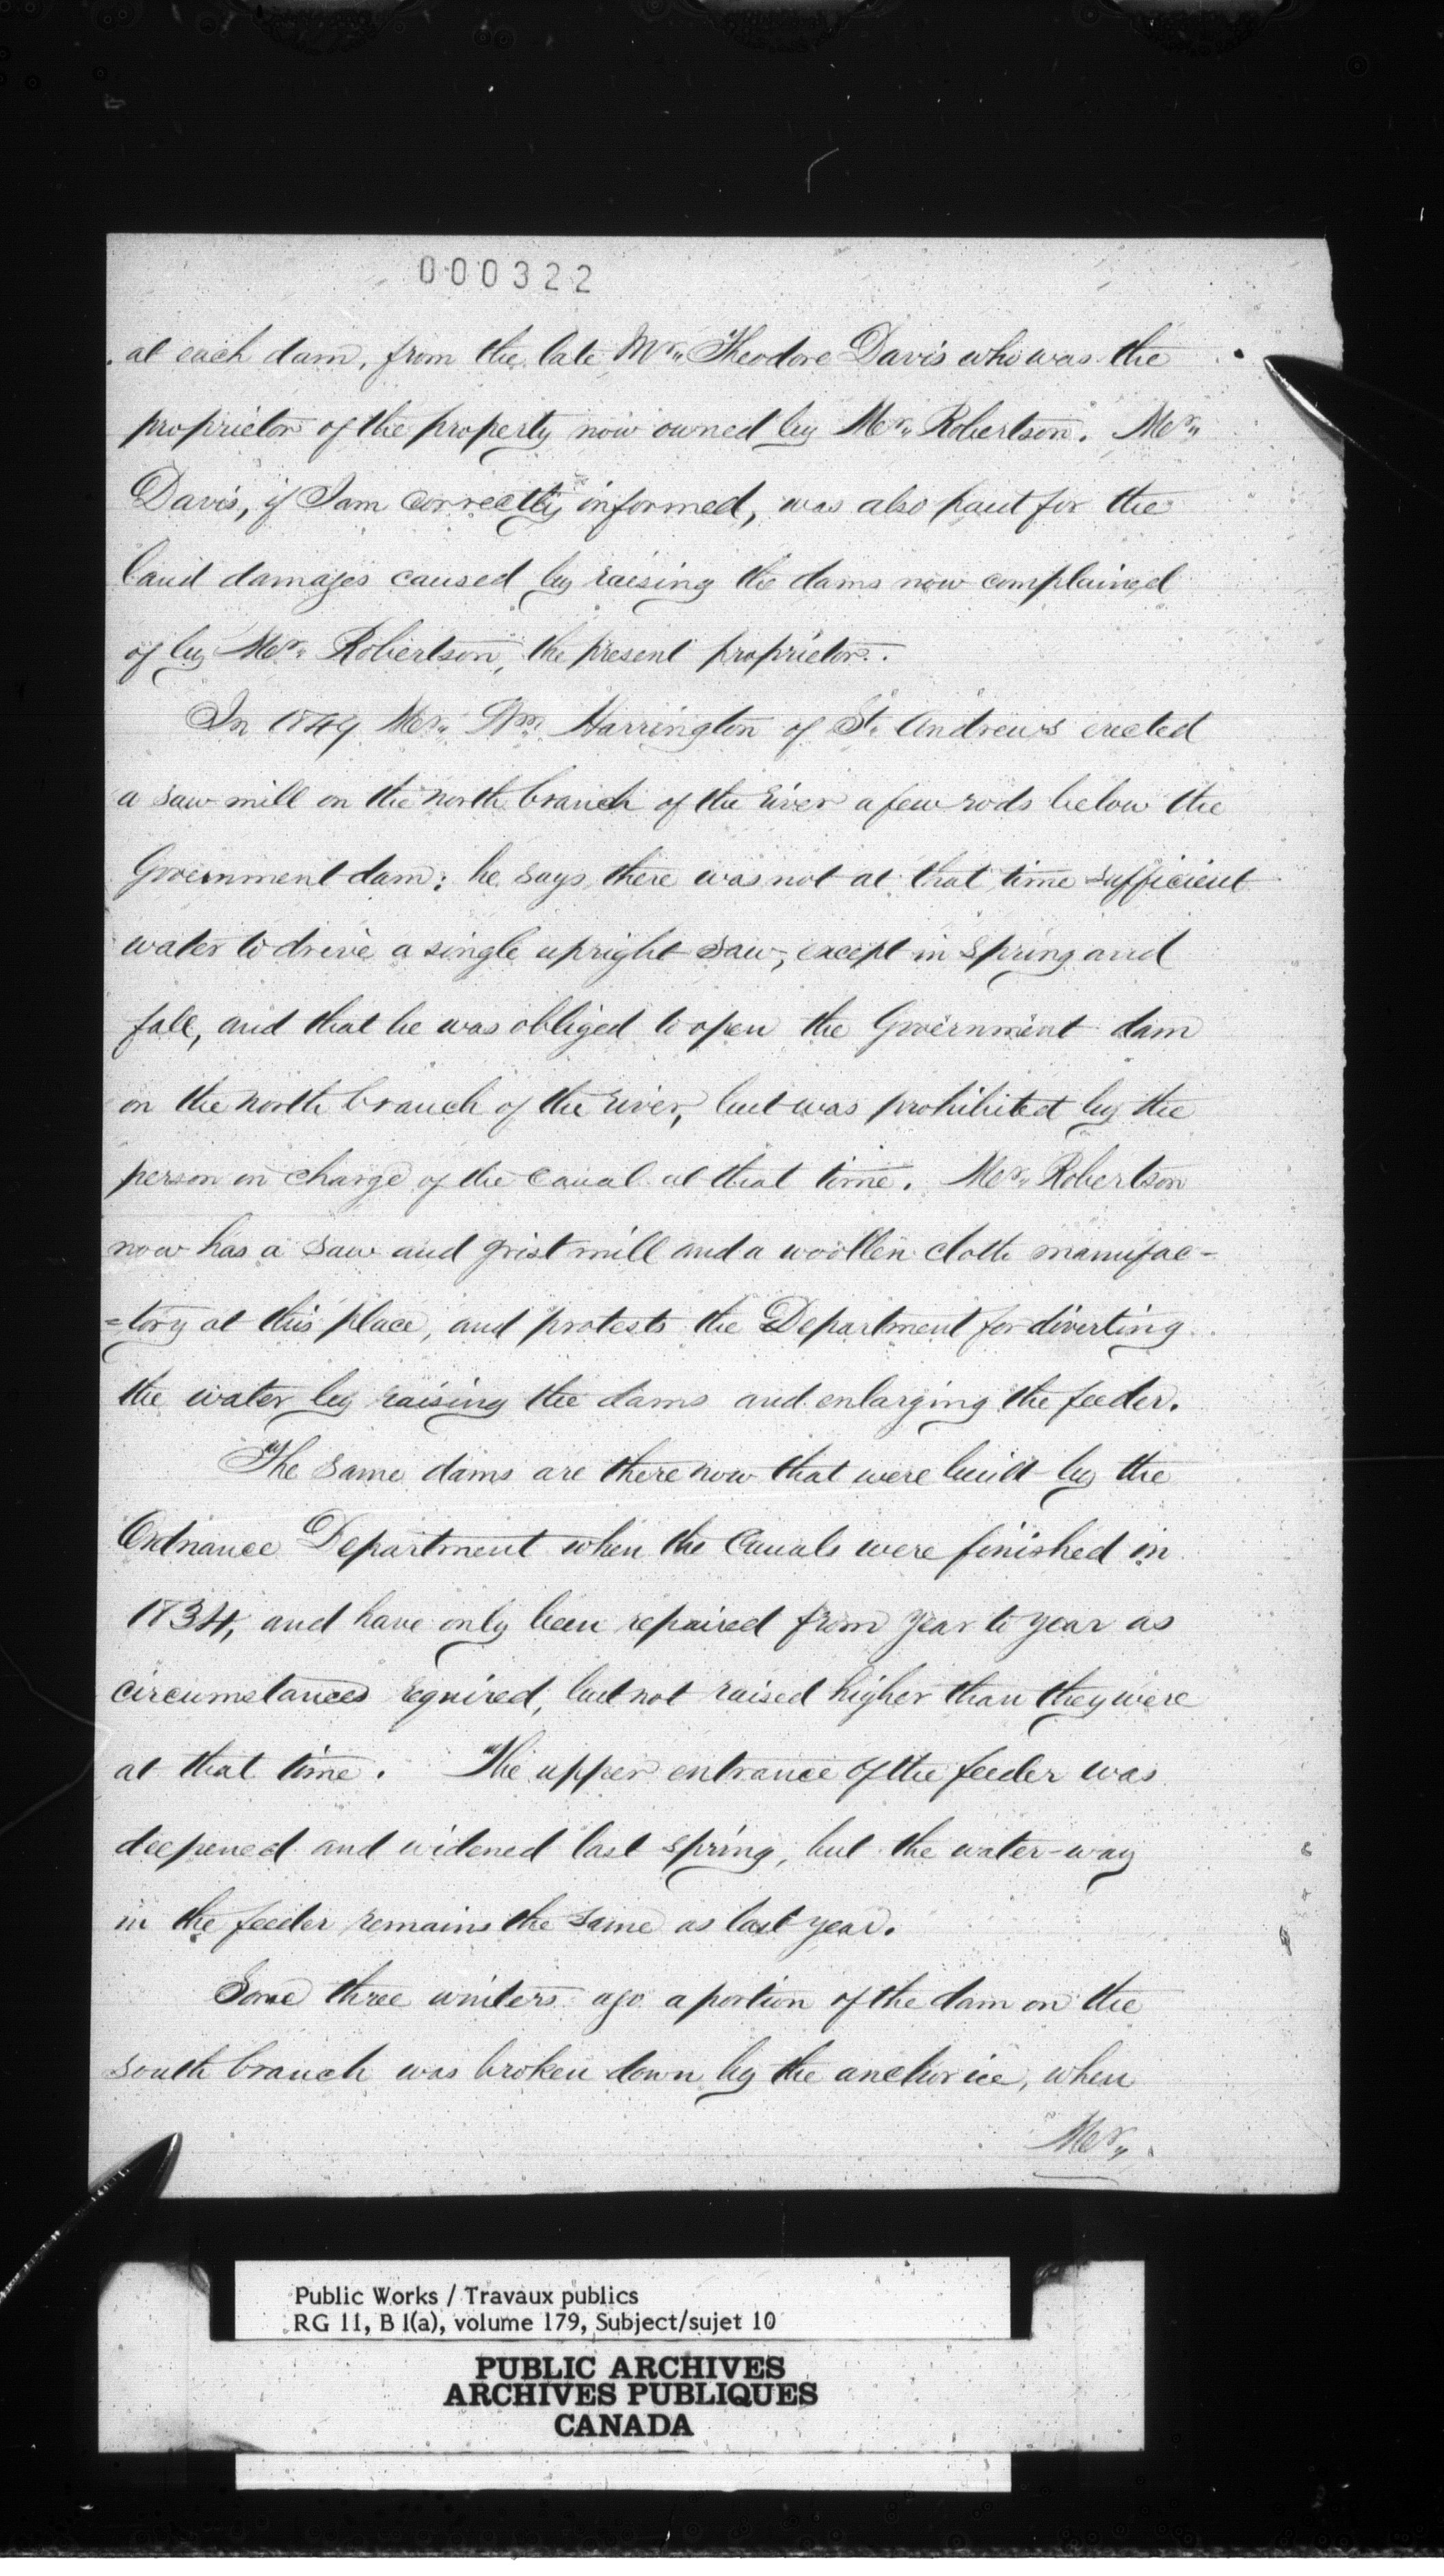 000322
at each dam, from the late Mr. Theodore Davis who was the
proprietor of the property now owned by Mr. Robertson. Mr.
Davis, if I am correctly informed, was also paid for the
land damages caused by raising the dams now complained
of by Mr. Robertson, the present proprietor.
In 1849 Mr. Wm. Harrington of St. Andrews erected
a saw mill on the north branch of the river a few rods below the
Government dam; he says there was not at that time sufficient
water to drive a single upright saw, except in spring and
fall, and that he was obliged to open the Government dam
on the north branch of the river, but was prohibited by the
person in charge of the Canal at that time. Mr. Robertson
now has a saw and grist mill and a woollen cloth manufac-
=tory at this place, and protests the Department for diverting
the water by raising the dams and enlarging the feeder.
The same dams are there now that were built by the
Ordnance Department when the Canals were finished in
1834, and have only been repaired from year to year as
circumstances required, but not raised higher than they were
at that time. The upper entrance of the feeder was
deepened and widened last spring, but the water-way
in the feeder remains the same as last year.
Some three winters ago a portion of the dam on the
south branch was broken down by the anchor ice, when
Mr.
Public Works / Travaux publics
RG 11, B 1(a), volume 179, Subject/sujet 10
PUBLIC ARCHIVES
ARCHIVES PUBLIQUES
CANADA